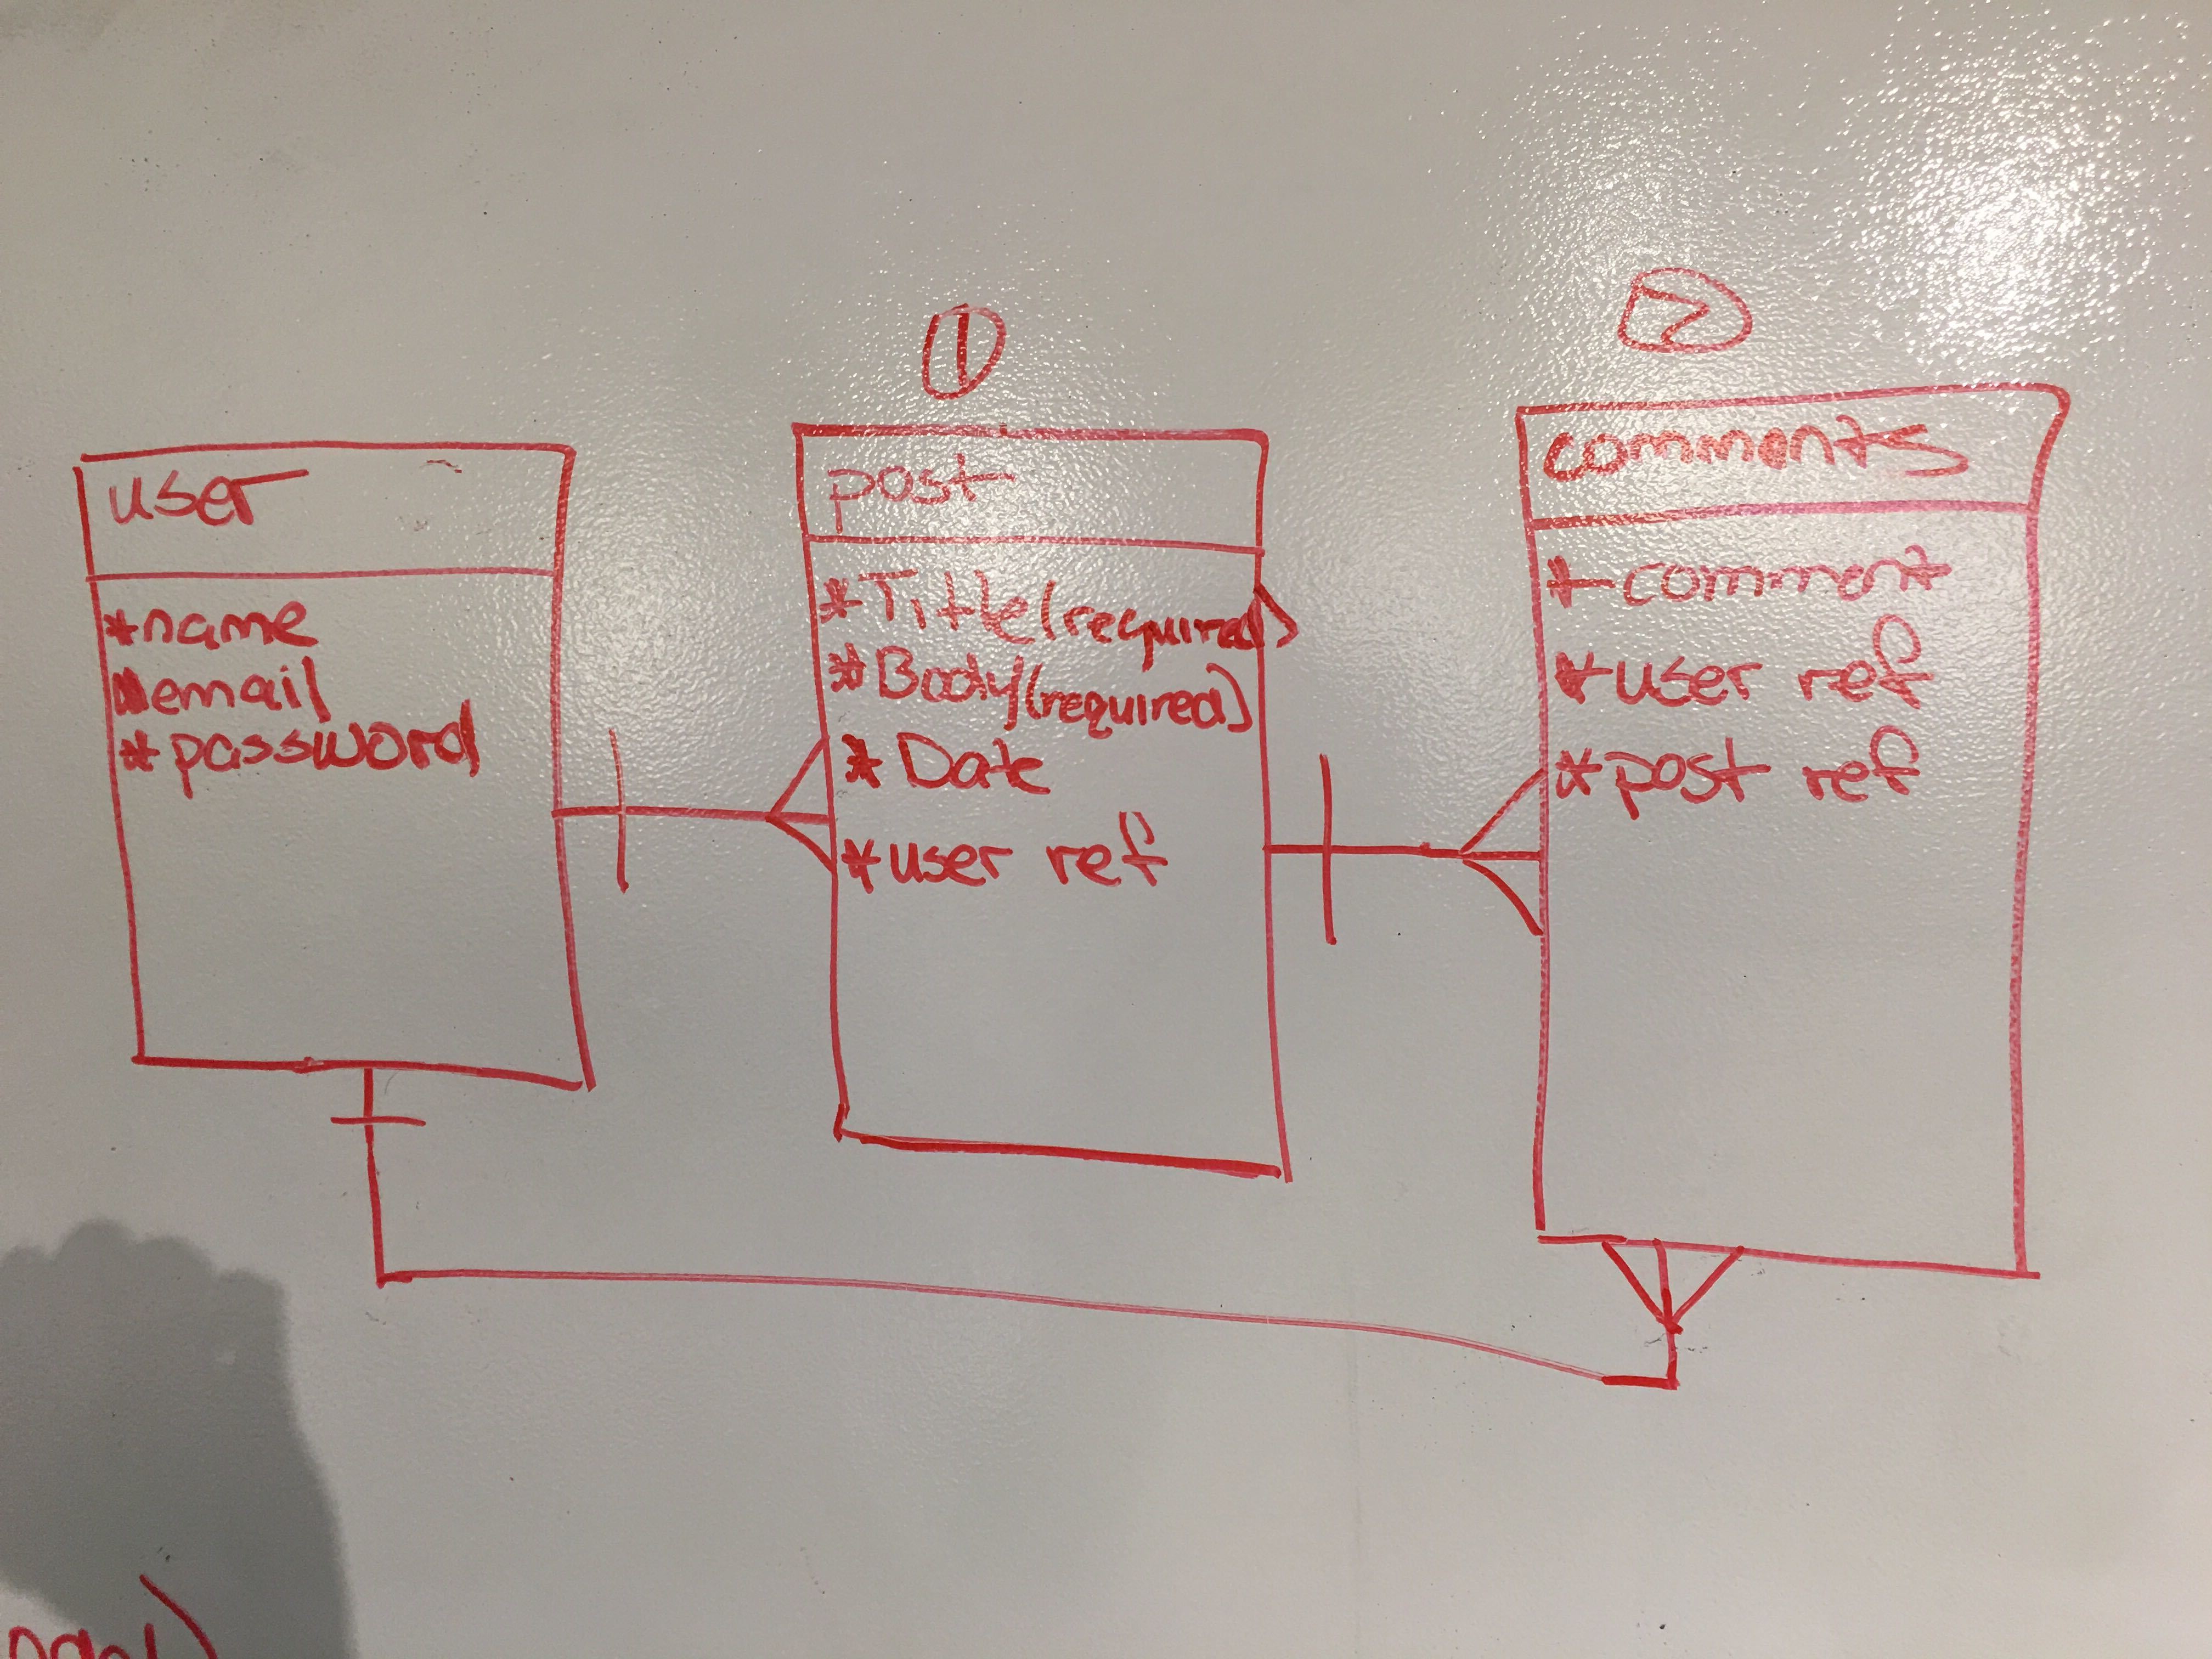 1
2
user
*name
*email
*password
post
*Title (required)
*Body (required)
*Date
*user ref
comments
*comment
*user ref
*post ref